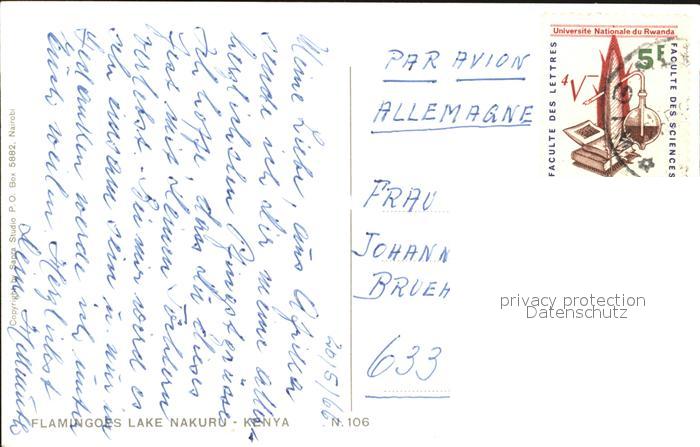 20/5/66
Meine Liebe, aus Afrika
sende ich Dir meine aller
herzlichsten Pfingstgrüsse
Ich hoffe, dass Du dieses
Fest mit Deinen Töchtern
verlebst. Bei mir wird es
ich einsam sein u. nur in
Gedanken werde ich unter
Euch weilen Herzlichst
Dein Hellmuth
PAR AVION
ALLEMAGNE
FRAU
JOHANN
BRUEH
633
Université Nationale du Rwanda
5F
FACULTE DES LETTRES
FACULTE DES SCIENCES
4V
privacy protection
Datenschutz
Copyright by Sapra Studio P.O. Box 5882, Nairobi
FLAMINGOES LAKE NAKURU - KENYA N.106